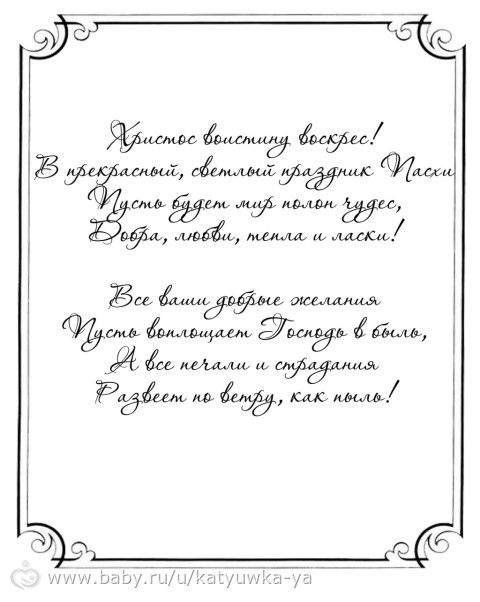 Христос воистину воскрес!
В прекрасный, светлый праздник Пасхи
Пусть будет мир полон чудес,
Добра, любви, тепла и ласки!
Все ваши добрые желания
Пусть воплощает Господь в быль,
А все печали и страдания
Развеет по ветру, как пыль!
www.baby.ru/u/katyuwka-ya